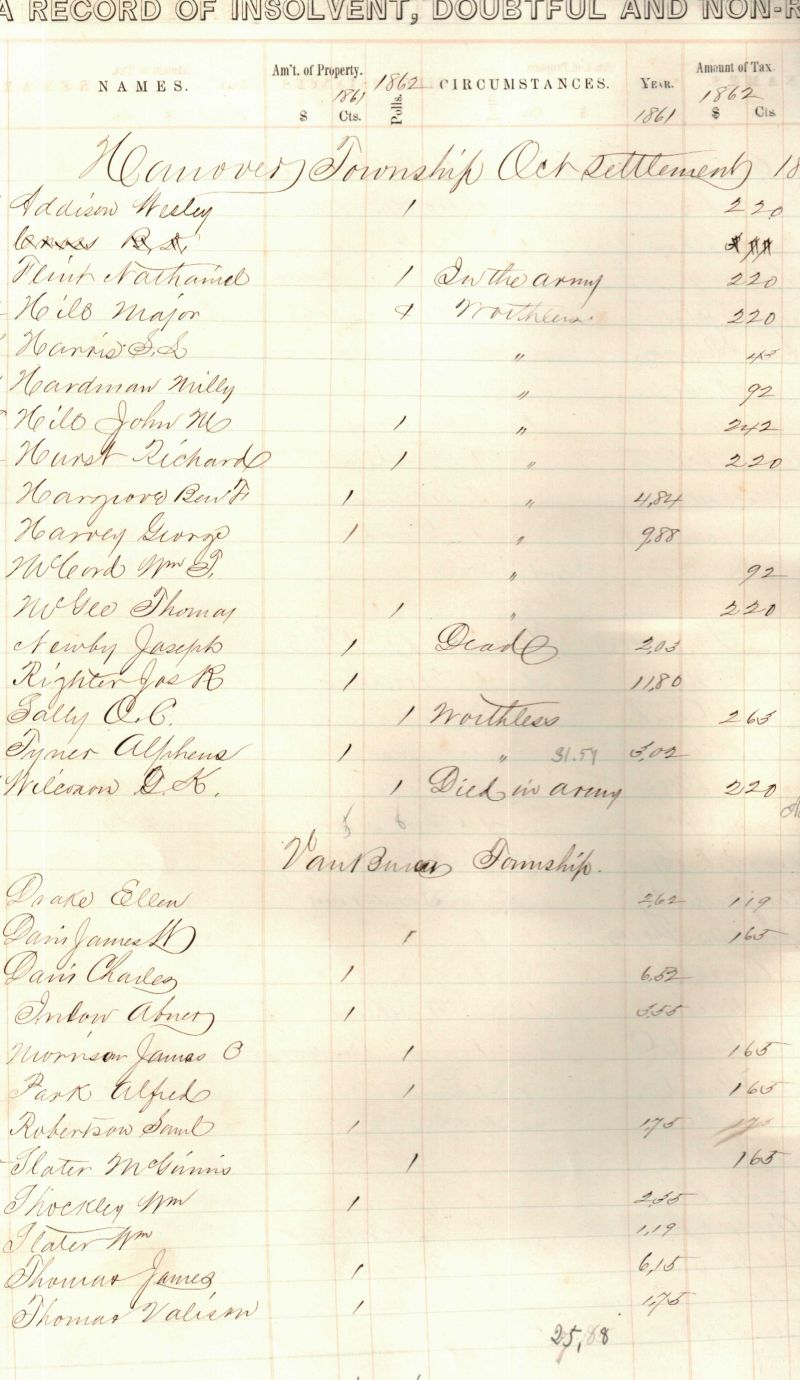 A RECORD OF INSOLVENT, DOUBTFUL AND NON-R
NAMES. Am't. of Property. 1861 $ Cts. 1862 Polls. CIRCUMSTANCES. YEAR. 1861 Amount of Tax 1862 $ Cts.
Hanover Township Oct Settlement 18
Addison Wesley 1 2 20
R. S.
Flint Nathaniel 1 In the army 2 20
Hill Major 1 Worthless 2 20
Harris S. L " 45
Hardman Milly " 92
Hill John M 1 " 2 42
Hurst Richard 1 " 2 20
Hargrove Benj F 1 " 4,84
Harvey George 1 " 9,88
McCord Wm T. " 92
McGee Thomas 1 " 2 20
Newby Joseph 1 Dead 2,03
Righter Jas R 1 11,80
Sally O. C. 1 Worthless 2 63
Tyner Alpheus 1 " 31.57 3,02
Wilcoxon G. K. 1 Died in army 2 20
5 6
Van Buren Township.
Drake Ellen 2,62 1 19
Davis James H 1 1 65
Davis Charles 1 6,52
Inlow Abner 1 3,55
Morrison James O 1 1 65
Park Alfred 1 1 65
Robertson Saml 1 1,75
Slater McGinnis 1 1 65
Shockley Wm 1 2,35
Slater Wm 1,19
Thomas James 1 6,15
Thomas Valison 1 1,75
25,88